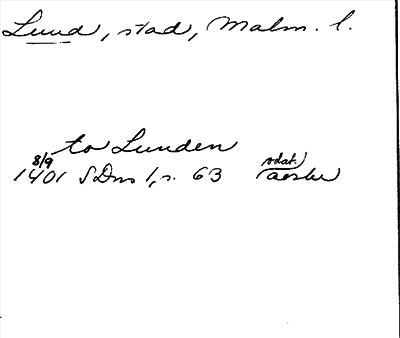 Lund, stad, Malm. l.
to Lunden
8/9 odat.
1401 SDns 1, s. 63